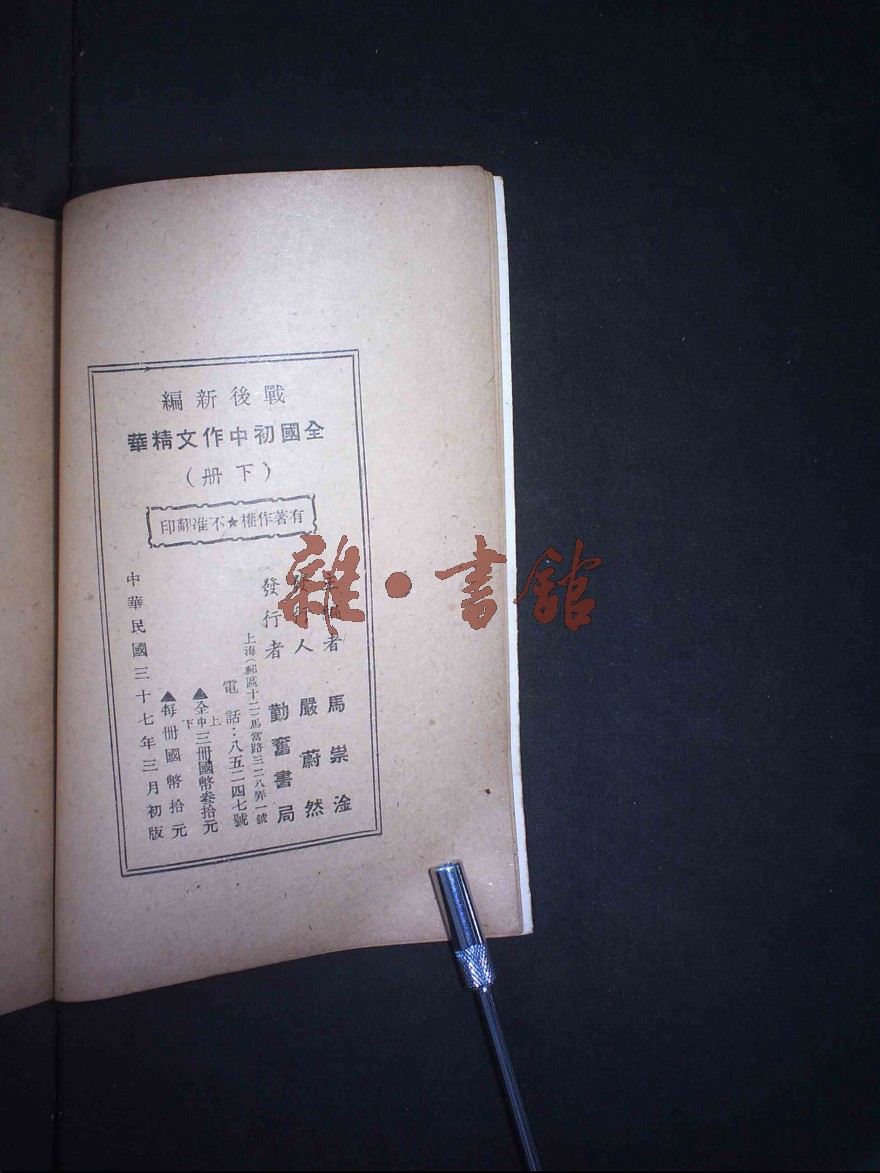 戰後新編
全國初中作文精華
(下冊)
有著作權★不准翻印
主編者 馬崇淦
發行人 嚴蔚然
發行者 勤奮書局
上海(郵區十二)馬當路三二八弄一號
電話：八五二四七號
▲全上中下三冊國幣叁拾元
▲每冊國幣拾元
中華民國三十七年三月初版
雜·書館